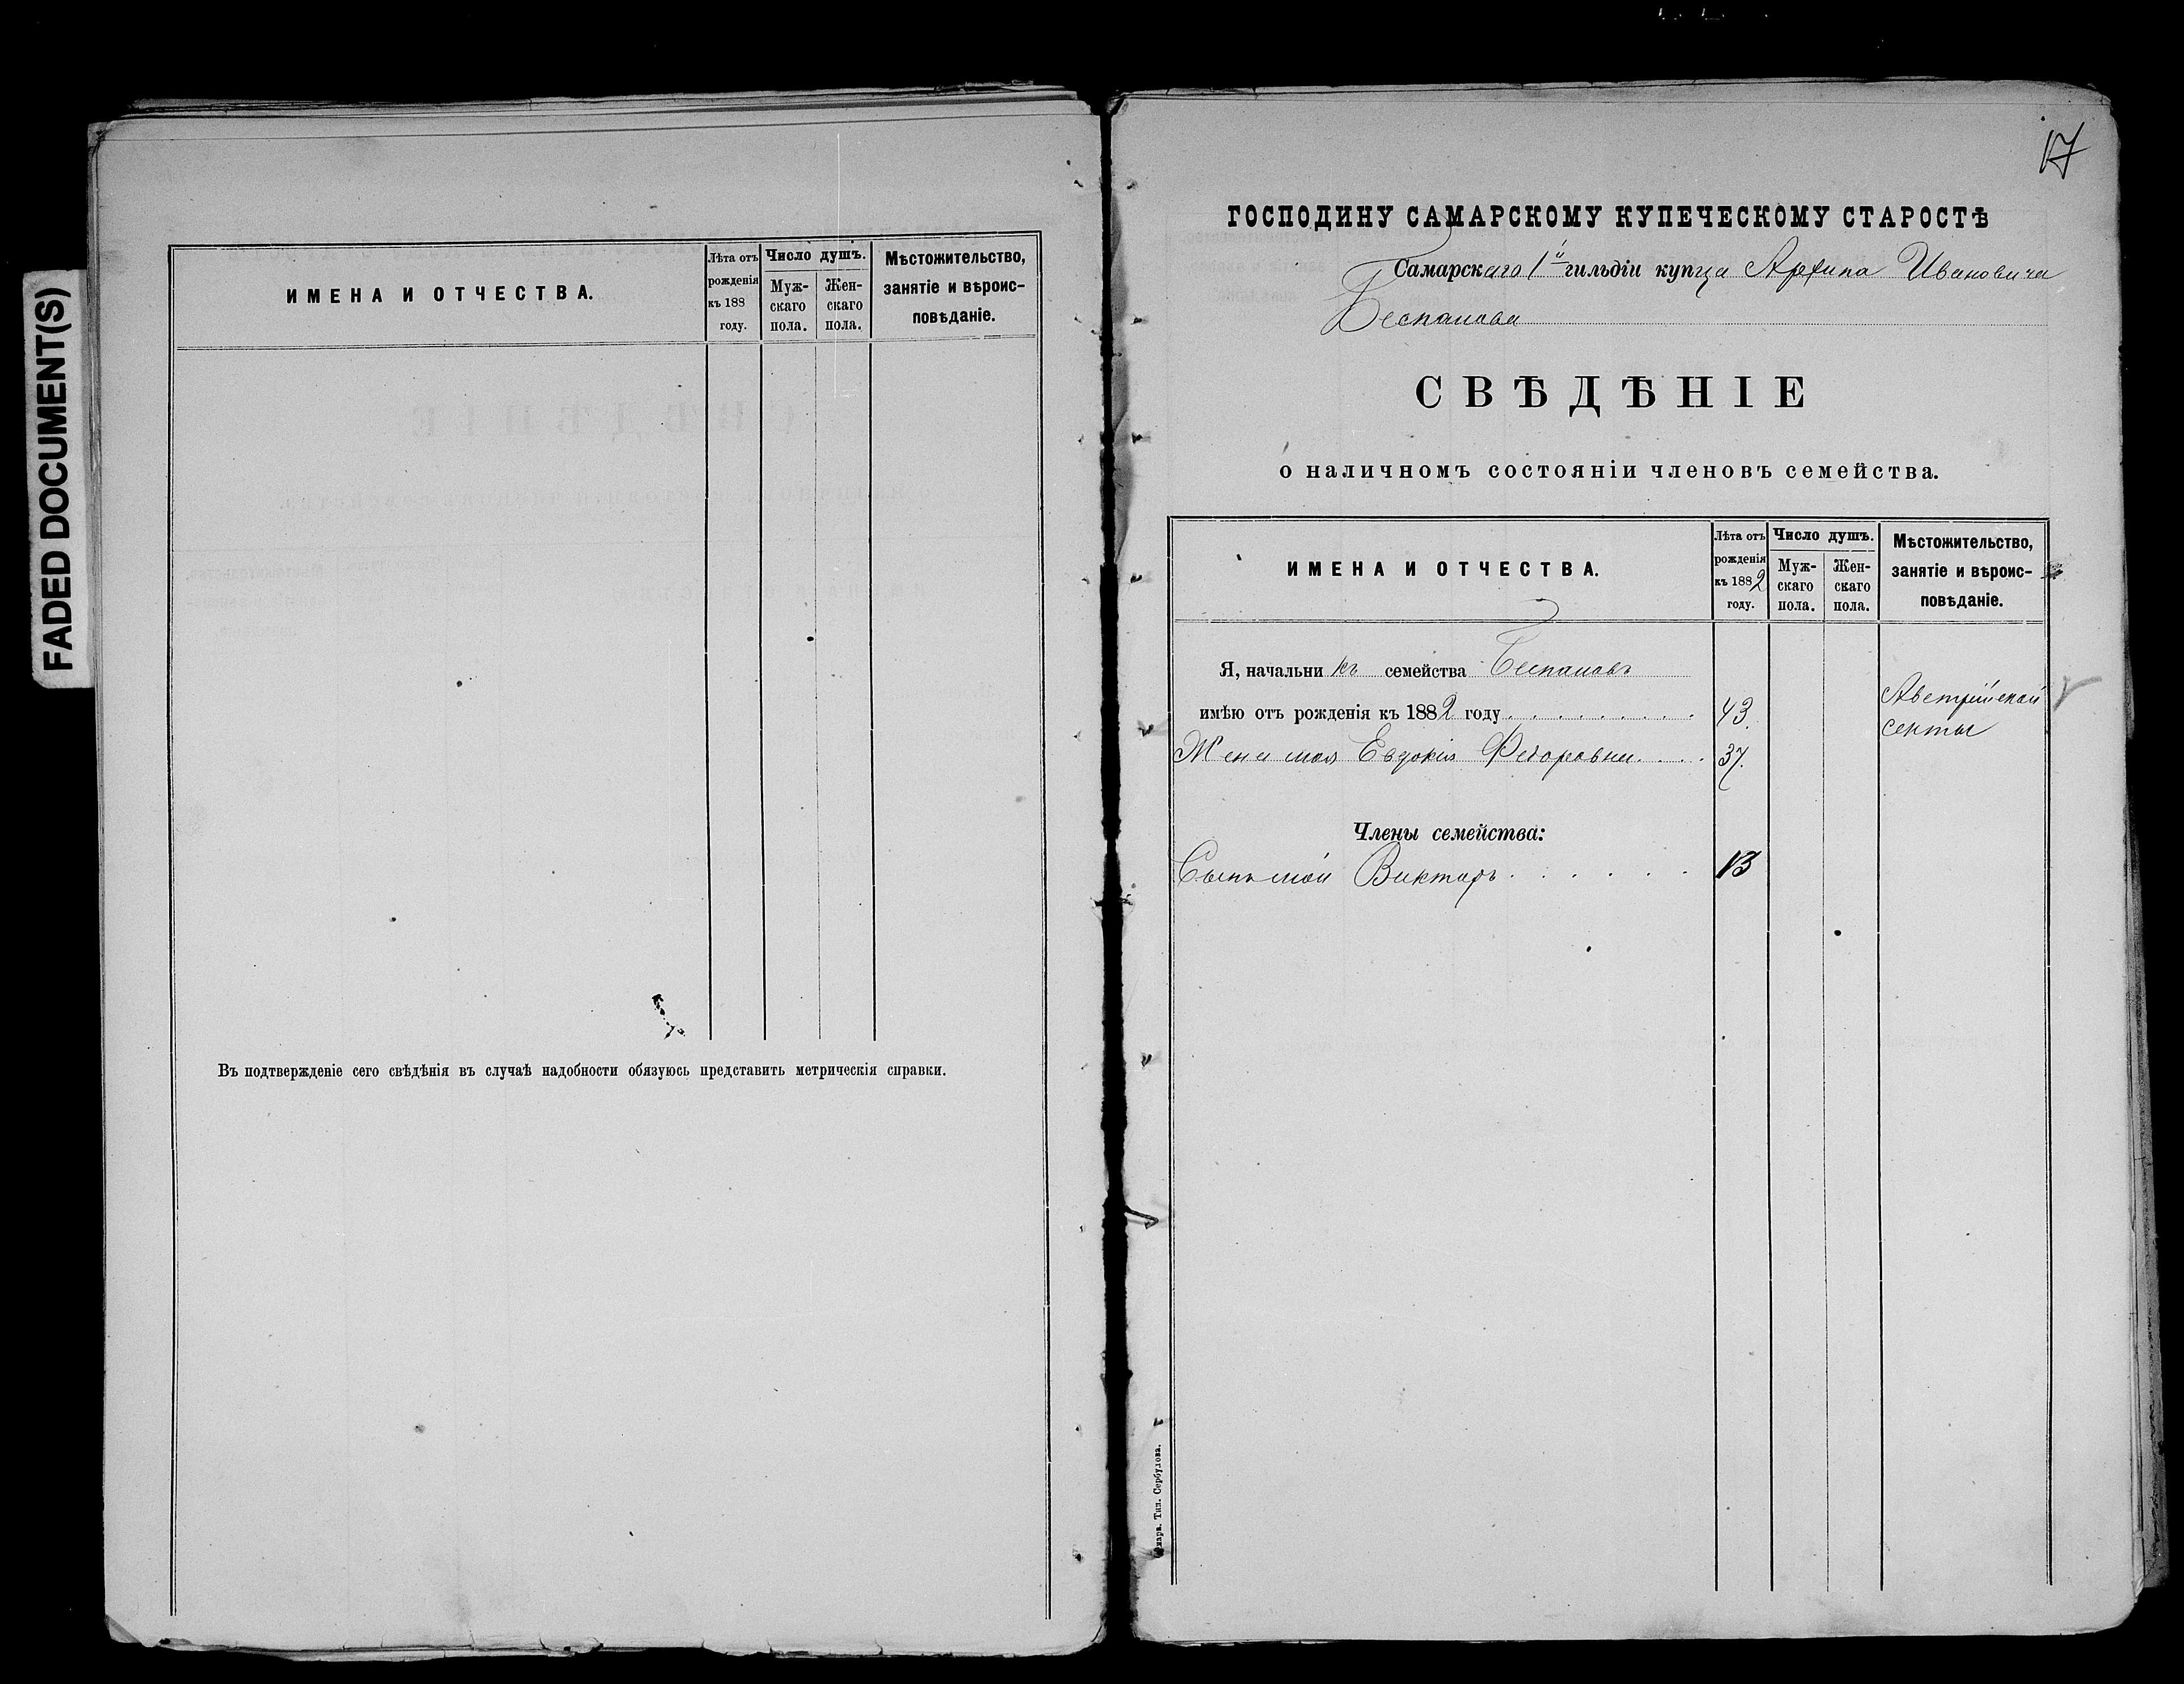 FADED DOCUMENT(S)
ИМЕНА И ОТЧЕСТВА.
Лѣта отъ рожденія къ 188 году.
Число душъ.
Мужскаго пола.
Женскаго пола.
Мѣстожительство, занятіе и вѣроисповѣданіе.
Въ подтвержденіе сего свѣдѣнія въ случаѣ надобности обязуюсь представить метрическія справки.
17
ГОСПОДИНУ САМАРСКОМУ КУПЕЧЕСКОМУ СТАРОСТѢ
Самарскаго 1й гильдіи купца Арефина Ивановича
Беспалова
СВѢДѢНІЕ
о наличномъ состояніи членовъ семейства.
ИМЕНА И ОТЧЕСТВА.
Лѣта отъ рожденія къ 1882 году.
Число душъ.
Мужскаго пола.
Женскаго пола.
Мѣстожительство, занятіе и вѣроисповѣданіе.
Я, начальникъ семейства Беспаловъ
имѣю отъ рожденія къ 1882 году 43.
Австрійской
секты
Жена моя Евдокія Федоровна 37.
Члены семейства:
Сынъ мой Викторъ 13
Самара. Тип. Сербулова.